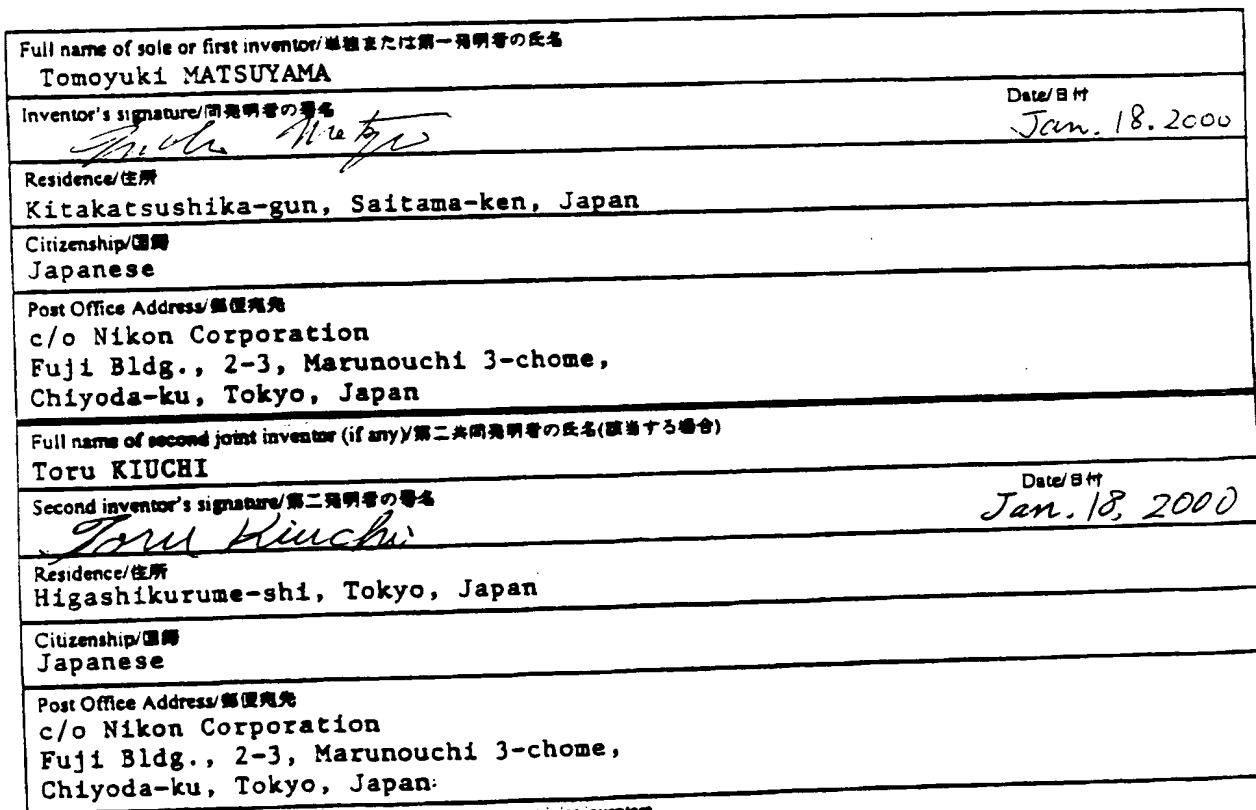 Full name of sole or first inventor/単独または第一発明者の氏名
Tomoyuki MATSUYAMA
Inventor's signature/同発明者の署名
Date/日付
Jan. 18. 2000
Residence/住所
Kitakatsushika-gun, Saitama-ken, Japan
Citizenship/国籍
Japanese
Post Office Address/郵便宛先
c/o Nikon Corporation
Fuji Bldg., 2-3, Marunouchi 3-chome,
Chiyoda-ku, Tokyo, Japan
Full name of second joint inventor (if any)/第二共同発明者の氏名(該当する場合)
Toru KIUCHI
Second inventor's signature/第二発明者の署名
Date/日付
Toru Kiuchi
Jan. 18, 2000
Residence/住所
Higashikurume-shi, Tokyo, Japan
Citizenship/国籍
Japanese
Post Office Address/郵便宛先
c/o Nikon Corporation
Fuji Bldg., 2-3, Marunouchi 3-chome,
Chiyoda-ku, Tokyo, Japan